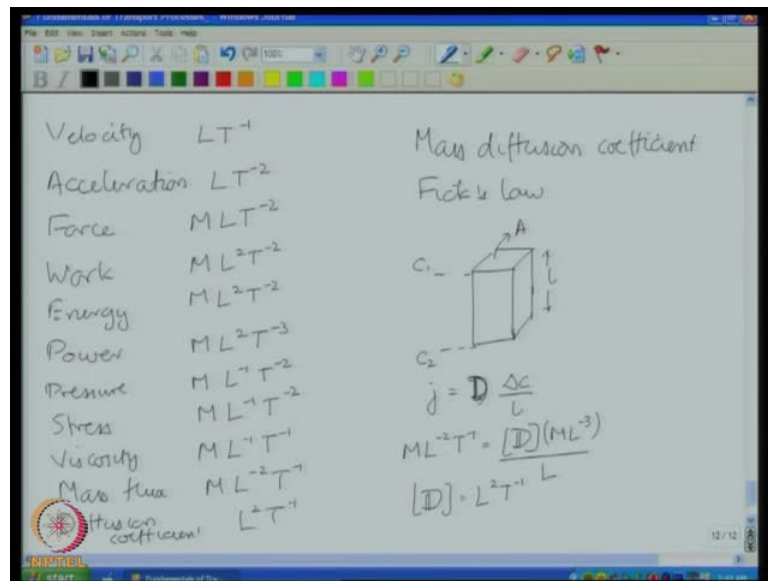 Fundamentals of Transport Processes_ - Windows Journal
File Edit View Insert Actions Tools Help
100%
B I
Velocity LT⁻¹
Acceleration LT⁻²
Force MLT⁻²
Work ML²T⁻²
Energy ML²T⁻²
Power ML²T⁻³
Pressure ML⁻¹T⁻²
Stress ML⁻¹T⁻²
Viscosity ML⁻¹T⁻¹
Mass flux ML⁻²T⁻¹
Diffusion coefficient L²T⁻¹
Mass diffusion coefficient
Fick's law
A
C₁
L
C₂
j = D Δc / L
ML⁻²T⁻¹ = [D](ML⁻³) / L
[D] = L²T⁻¹
12 / 12
NPTEL
start
Fundamentals of Tra...